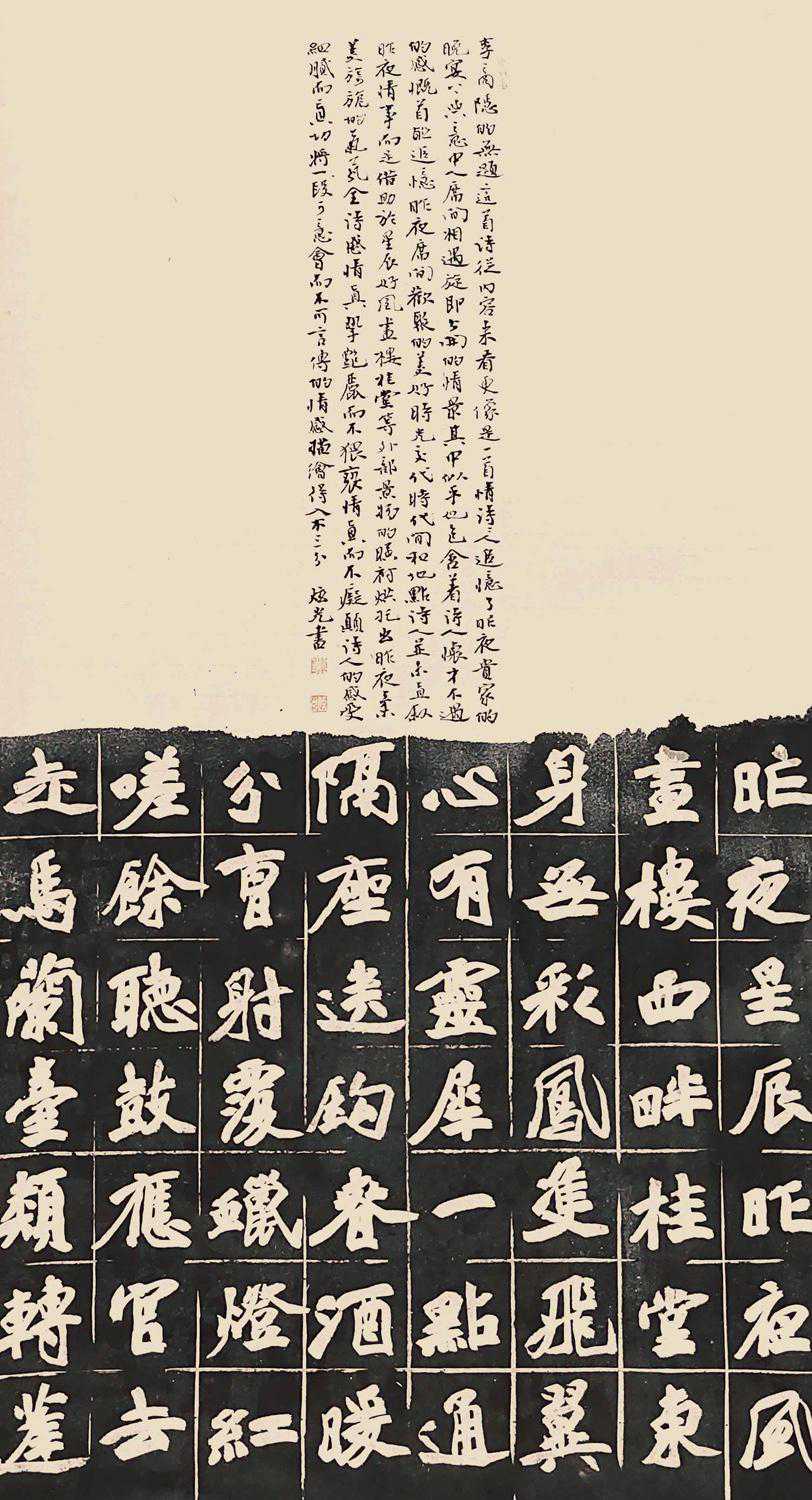 李商隐的無題這首诗從内容来看更像是一首情诗人追憶了昨夜貴家的
晚宴上與意中人席间相遇旋即分開的情景其中似乎也包含着诗人懷才不遇
的感慨首联追憶昨夜席间歡聚的美好時光交代時代间和地點诗人並未直叙
昨夜情事而是借助於星辰好风畫樓桂堂等外部景物的映衬烘托出昨夜柔
美旖旎的氣氛全詩感情真挚艷麗而不猥褻情真而不癡颠诗人的感受
細膩而真切將一段可意會而不可言傳的情感描繪得入木三分
昨夜星辰昨夜风
畫樓西畔桂堂東
身無彩鳳隻飛翼
心有靈犀一點通
隔座送鈎春酒暖
分曹射覆蠟燈紅
嗟餘聽鼓應官去
走馬蘭臺類轉蓬